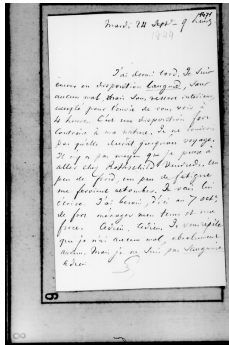 Mardi 24 Sept. 9 heures
J'ai dormi tard. Je suis
encore en disposition languid, sans
aucun mal, mais sans ressort intérieur,
excepté pour l'envie de vous voir à
4 heures. C'est une disposition fort
contraire à ma nature. Je ne
par quelle
Il n'y a pas moyen que je pense à
aller chez Rothschild Vendredi. Un
peu de froid, un peu de fatigue
me feroient retomber. Je vais lui
écrire. J'ai besoin, d'ici au 7 octobre
de fort ménager mon tems et ma
force. Adieu, Adieu. Je vous répète
que je n'ai aucun mal, absolument
aucun. Mais je ne suis pas
Adieu
G
9